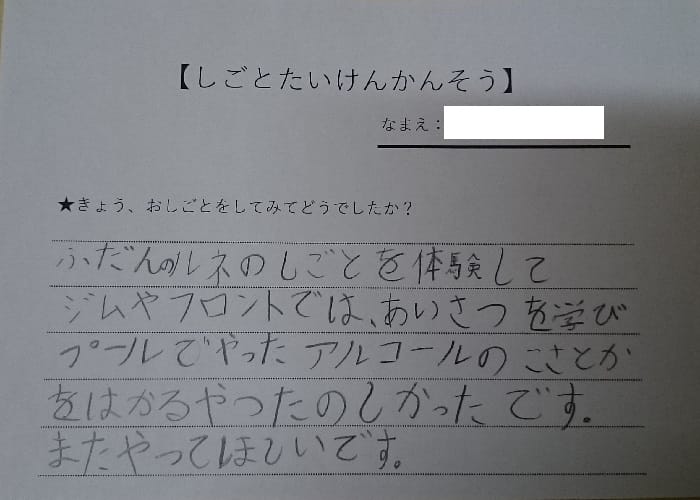 【しごとたいけんかんそう】
なまえ：
★きょう、おしごとをしてみてどうでしたか？
ふだんのルネのしごとを体験して
ジムやフロントでは、あいさつを学び
プールでやったアルコールのこさとか
をはかるやつたのしかったです。
またやってほしいです。